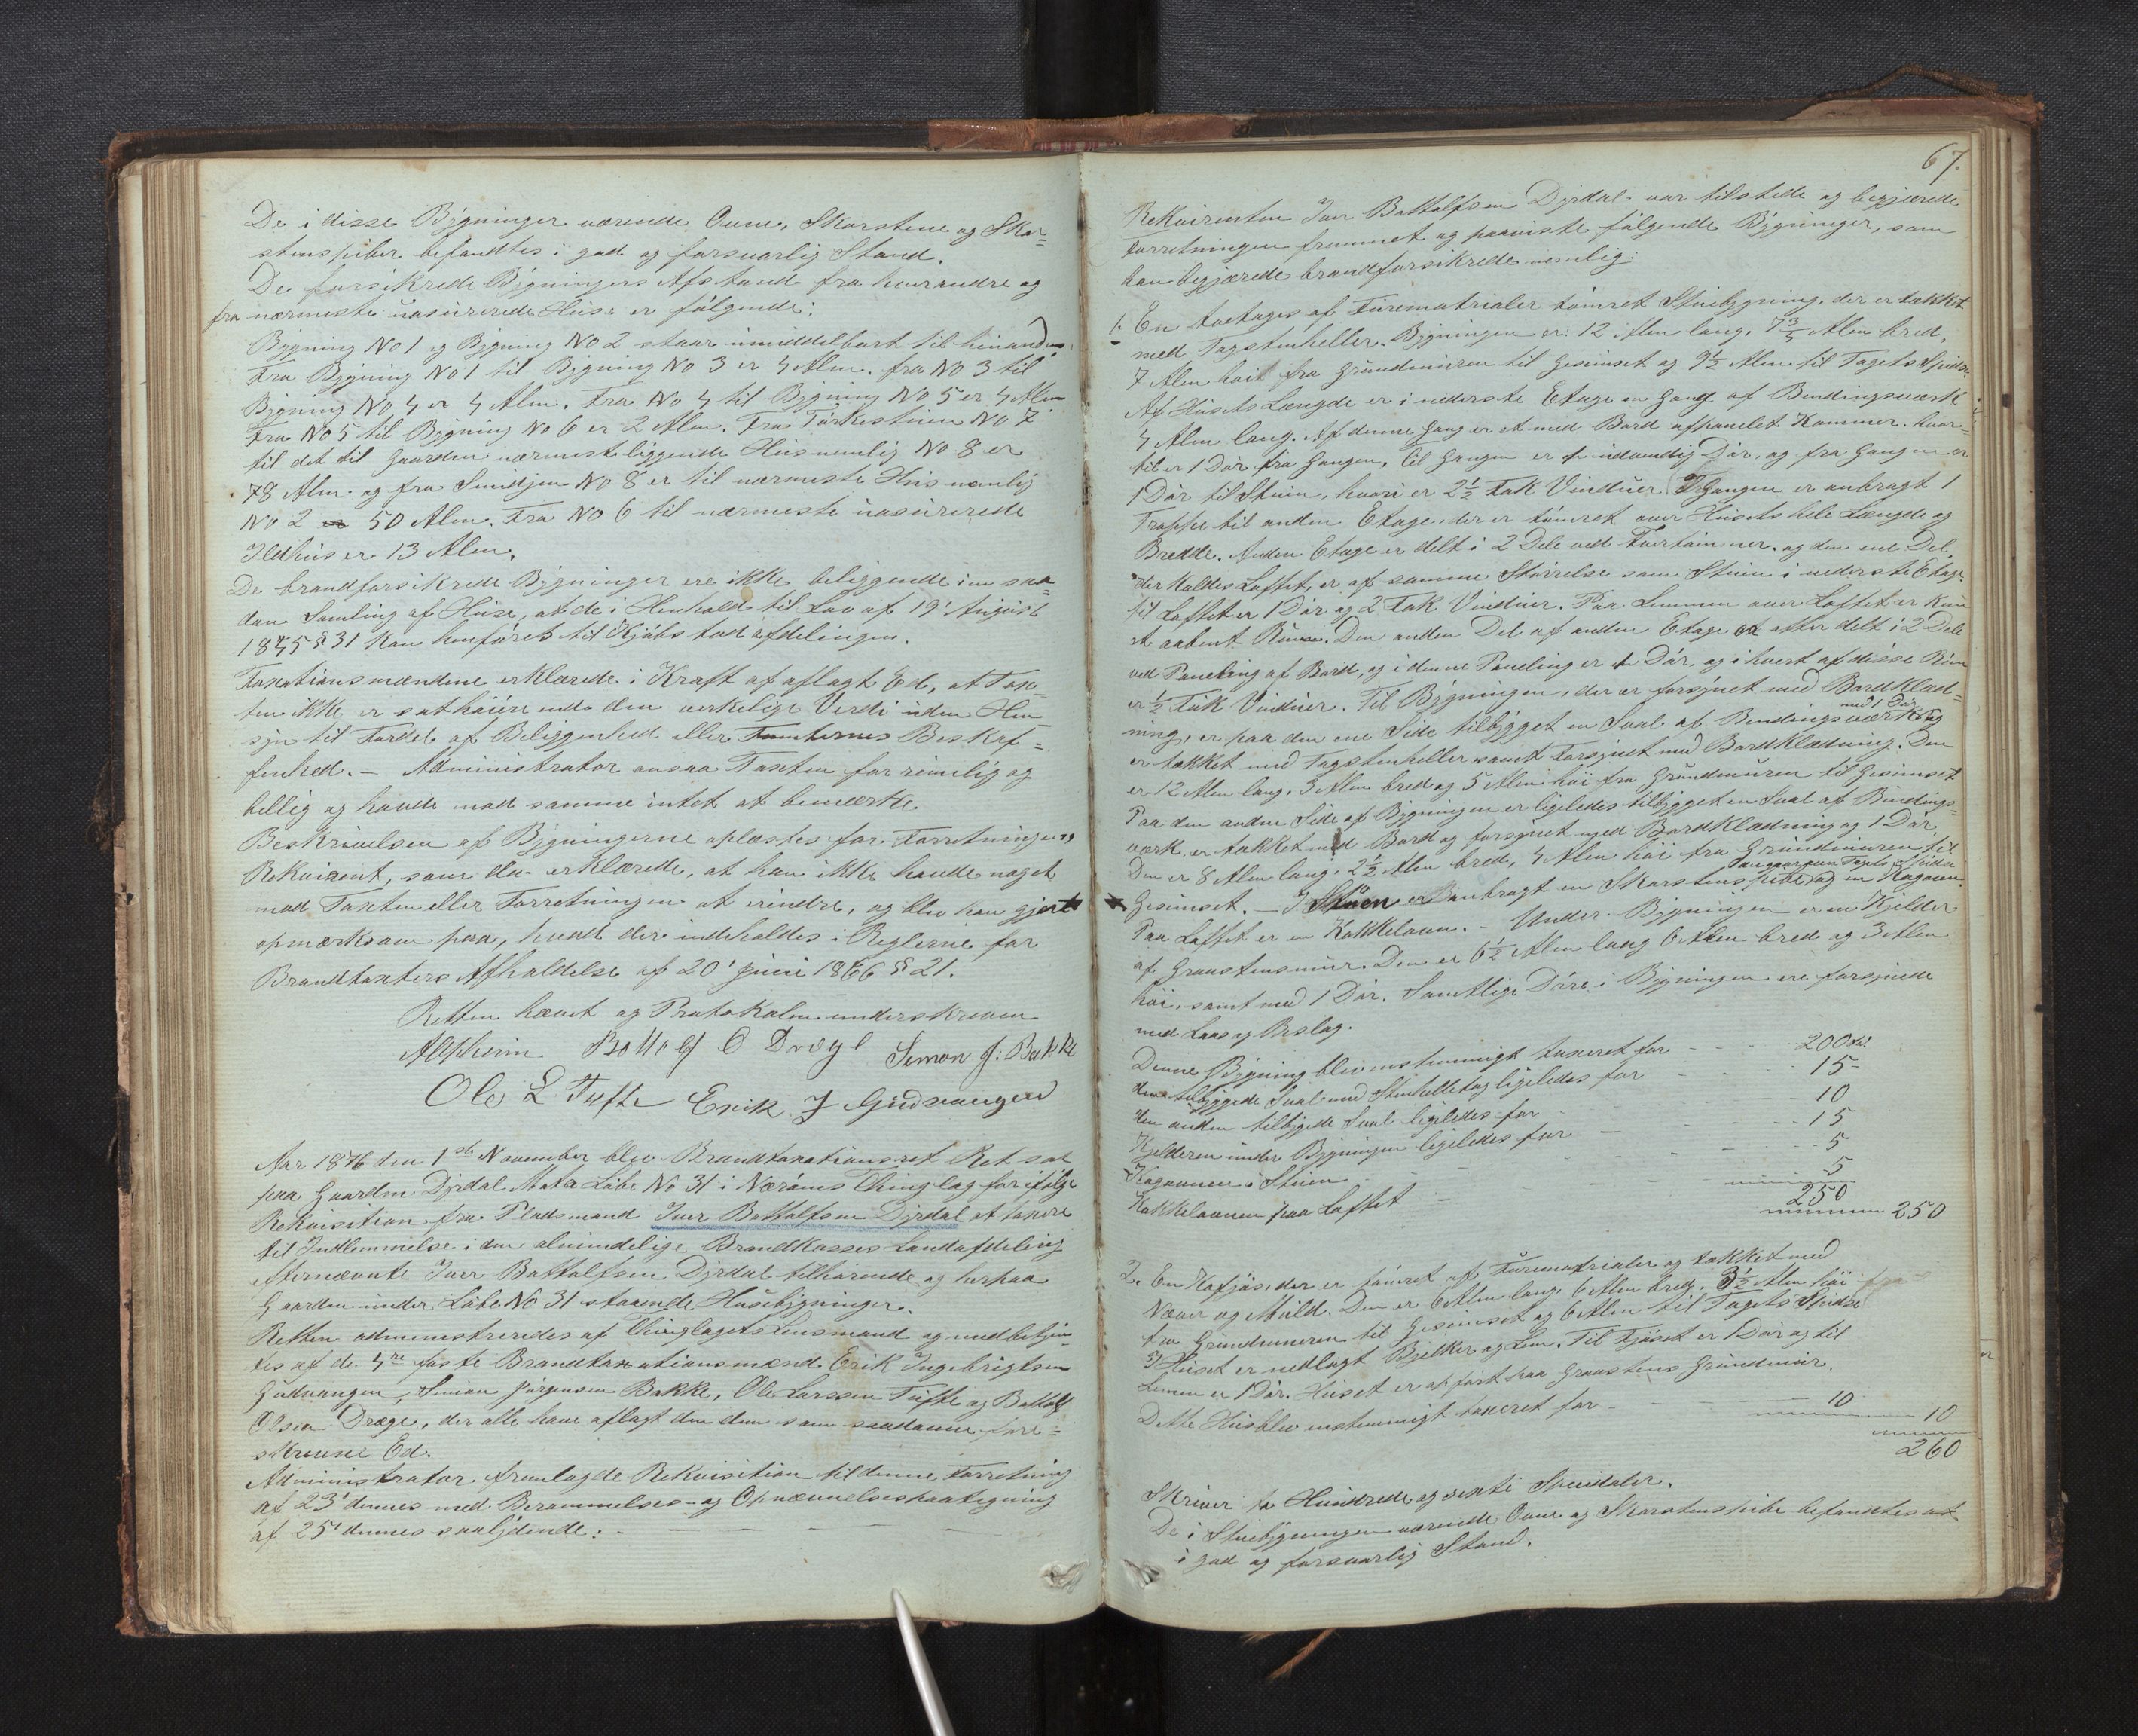 De i disse Bÿgninger værende Ovne, Skorstene og Skor=
stenspiber befandtes i god og forsvarlig Stand.
De forsikrede Bÿgningers Afstand fra hverandre og
fra nærmeste uasurerede Huse er følgende:
Bÿgning No 1 og Bÿgning No 2 staar umiddelbart til hinanden.
Fra Bÿgning No 1 til Bÿgning No 3 er 4 Alen. fra No 3 til
Bÿgning No 4 er 4 Alen. Fra No 4 til Bÿgning No 5 er 4 Alen
Fra No 5 til Bÿgning No 6 er 2 Alen. Fra Tørkestuen No 7
til det til Gaarden nærmest liggende Huus nemlig No 8 er
78 Alen og fra Smidjen No 8 er til nærmeste Hus nemlig
No 2 er 50 Alen. Fra No 6 til nærmeste uasurerede
Ildhus er 13 Alen.
De brandforsikrede Bÿgninger ere ikke beliggende i en saa=
dan Samling af Huse, at de i Henhold til Lov af 19' August
1845 § 31 kan henføres til Kjøbstadafdelingen.
Taxationsmændene erklærede i Kraft af aflagt Ed, at Tax=
ten ikke er sat høiere end den verkelige Verdi uden Hen
sÿn til Fordel af Beliggenhed eller Tomternes Beskaf=
fenhed. - Administrator ansaa Taxten for rimelig og
billig og havde mod samme intet at bemærke.
Beskrivelsen af Bÿgningerne oplæstes for Forretningens
Rekvirent, som da erklærede, at han ikke havde noget
mod Taxten eller Forretningen at erindre, og blev han gjort
opmærksom paa, hvad der indeholdes i Reglerne for
Brandtaxters Afholdelse af 20' Juni 1866 § 21.
Retten hævet og Protokolen underskreven
Alepheim Bottolf O Dræge Simon J: Bakke
Ole L Tufte Erik J Gudvangen
Aar 1876 den 1ste November blev Brandtaxationsret Ret sat
paa Gaarden Dÿrdal Mat: Løbe No 31 i Nærøens Thinglag for ifølge
Rekvisition fra Pladsmand Iver Bottolfsen Dÿrdal at taxere
til Indlemmelse i den almindelige Brandkasses Landafdeling
efternævnte Iver Bottolfsen Dÿrdal tilhørende og herpaa
Gaarden under Løbe No 31 staaende Husebÿgninger.
Retten administreredes af Thinglagets Lensmand og medbetjen
tes af de 4re faste Brandtaxationsmænd Erik Ingebrigtsen
Gudvangen, Simon Jørgensen Bakke, Ole Larssen Tufte og Bottolf
Olsen Dræge, der alle have aflagt den dem som saadanne fore=
skrevne Ed.
Administrator fremlagde Rekvisition til denne Forretning
af 23' dennes med Berammelses- og Opnævnelsespaategning
af 25' dennes saalÿdende: -
67.
Rekvirenten Iver Bottolfsen Dÿrdal var tilstede og begjærede
Forretningen fremmet og paaviste følgende Bÿgninger, som
han begjærede brandforsikrede nemlig:
1. En toetages af Furematrialer tømret Stuebÿgning, der er tækket
med Tagstenheller. Bÿgningen er: 12 Alen lang, 7 3/4 Alen bred,
7 Alen høit fra Grundmuren til Gesimset og 9 1/2 Alen til Tagets Spidse.
Af Husets Længde er i nederste Etage en Gang af Bindingsværk
4 Alen lang. Af denne Gang er et med Bord afpanelet Kammer. hvor=
til er 1 Dør fra Gangen. Til Gangen er 1 udvendig Dør, og fra Gangen er
1 Dør til Stuen, hvori er 2 1/2 Fak Vinduer. I Gangen er anbragt 1
Trappe til anden Etage, der er tømret over Husets hele Længde og
Bredde. Anden Etage er delt i 2 Dele ved Tvertømmer, og den ene Del,
der kaldes Loftet, er af samme Størrelse som Stuen i nederste Etage.
til Loftet er 1 Dør og 2 Fak Vinduer. Paa Lemmen over Loftet er kun
et aabent Rum. Den anden Del af anden Etage er atter delt i 2 Dele
ved Paneling af Bord, og i denne Paneling er 1 Dør, og i hvert af disse Rum
er 1/2 Fak Vinduer. Til Bÿgningen, der er forsÿnet med Bordklæd=
ning, er paa den ene Side tilbÿgget en Sval af Bindingsværk med 1 Dør og
er tækket med Tagstenheller samt forsÿnet med Bordklædning. Den
er 12 Alen lang, 3 Alen bred og 5 Alen høi fra Grundmuren til Gesimset
Paa den anden Side af Bÿgningen er ligeledes tilbÿgget en Sval af Bindings=
værk, er tækket med Bord og forsÿnet med Bordklædning og 1 Dør.
Den er 8 Alen lang, 2 1/2 Alen bred, 4 Alen høi fra Grundmuren til
Gesimset. - I Stuen er anbragt en Skorstenspibe og en Kogeovn.
Paa Loftet er en Kakkelovn. - Under Bÿgningen er en Kjelder
af Graastensmur. Den er 6 1/2 Alen lang 6 Alen bred og 3 Alen
høi, samt med 1 Dør. Samtlige Døre i Bÿgningen ere forsÿnede
med Laas og Beslag.
Denne Bÿgning blev enstemmigt taxeret for - - - 200
den tilbÿggede Sval med Stenhelletag ligeledes for - - - 15
den anden tilbÿgede Sval ligeledes for - - - 10
Kjelderen under Bÿgningen ligeledes for - - - 15
Kogeovnen i Stuen - - - 5
Kakkelovnen paa Loftet - - - 5
250 250
2. En Køfjøs, der er tømret af Furematrialer og tækket med
Næver og Muld. Den er 6 Alen lang, 6 Alen bred, 3 1/2 Alen høi
fra Grundmuren til Gesimset og 6 Alen til Tagets Spidse
I Huset er nedlagt Bjelker og Lem. Til Fjøset er 1 Dør og til
Lemen er 1 Dør. Huset er opført paa Graastens Grundmur.
Dette Hus blev enstemmigt taxeret for - - - 10 10
260
Skriver to Hundrede og sexti Specidaler.
De i Stuebÿgningen værende Ovne og Skorstenspibe befandtes at
i god og forsvarlig Stand.